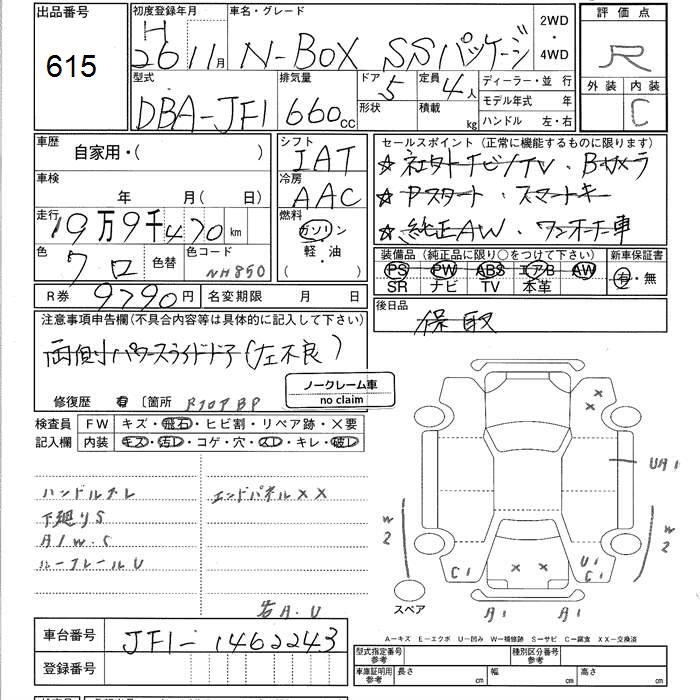 出品番号 615
初度登録年月 H 26 11月
車名・グレード N-BOX SSパッケージ
2WD・4WD
評価点 R
外装 内装 C
型式 DBA-JF1
排気量 660 CC
ドア 5 形状
定員 4人 積載 kg
ディーラー・並行
モデル年式 年
ハンドル 左・右
車歴 自家用・( )
シフト IAT
冷房 AAC
燃料 ガソリン・軽・油 ( )
車検 年 月( 日)
走行 19万9千470 km
色 クロ 色替 色コード NH850
R券 9790円 名変期限 月 日
セールスポイント(正常に機能するものに限ります)
★社外ナビ/TV・Bカメラ
★Pスタート・スマートキー
★純正AW・ワンオーナー車
装備品(純正品に限り○をつけて下さい) 新車保証書
PS PW ABS エアB AW 有・無
SR ナビ TV 本革
後日品 保 取
注意事項申告欄(不具合内容等は具体的に記入して下さい)
両側パワースライドドア(左不良)
修復歴 有 〔箇所 RフロアBP
ノークレーム車
no claim
検査員記入欄 FW キズ・飛石・ヒビ割・リペア跡・X要
内装 キズ・汚レ・コゲ・穴・スレ・キレ・破レ
ハンドルスレ エンドパネルXX
下廻りS
A1W.S
ルーフレールU
右A.U
X X
UA1
W2 W2
C1 U1 C1
X X
A1 A1
スペア
車台番号 JF1-1462243
登録番号
A－キズ E－エクボ U－凹み W－補修跡 S－サビ C－腐食 XX－交換済
型式指定番号 参考 種別区分番号 参考
車庫証明用 参考 長さ cm 幅 cm 高さ cm